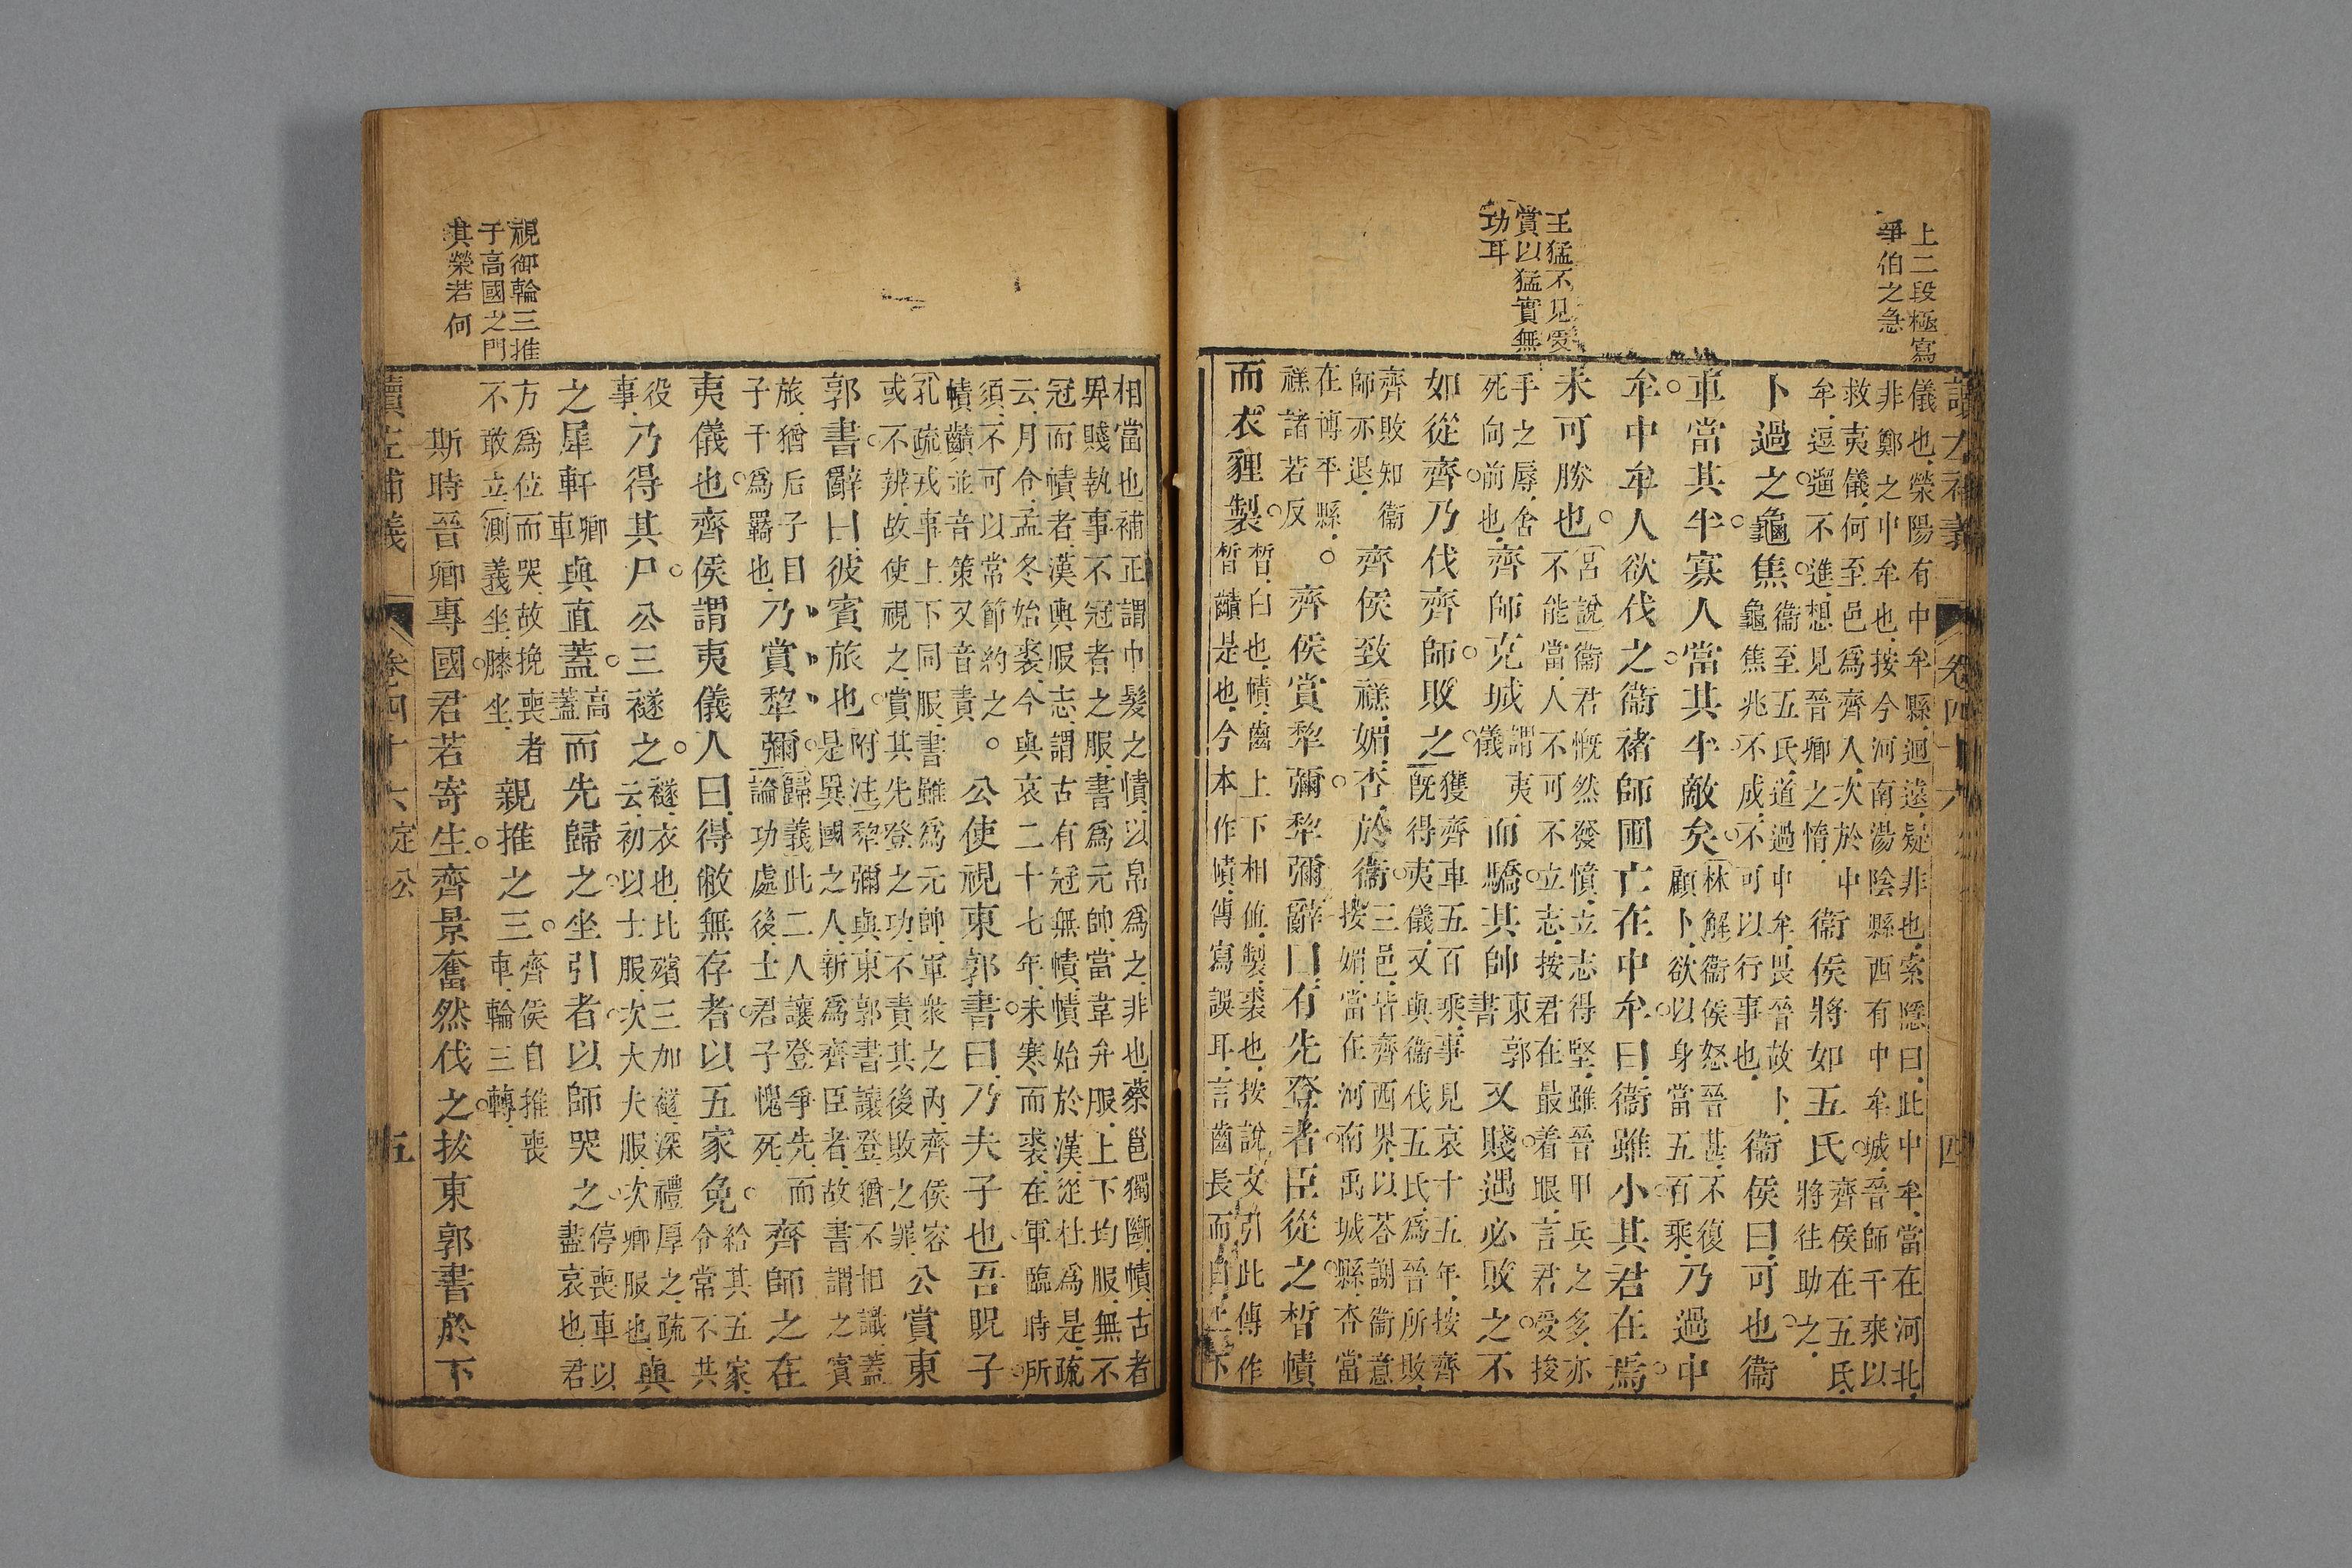 上二段極寫
爭伯之急
王猛不見愛
賞以猛實無
功耳
儀也榮陽有中牟縣迴遠疑非也索隱曰此中牟當在河北
非鄭之中牟也按今河南湯陰縣西有中牟城晉師千乘以
救夷儀何至邑爲齊人次於中
牟逗遛不進想見晉卿之惰
衞侯將如五氏
將往助之
齊侯在五氏
卜過之龜焦
衞至五氏道過中牟畏晉故卜
龜焦兆不成不可以行事也
衞侯曰可也衞
車當其半寡人當其半敵矣
林解衞侯怒晉甚不復
顧卜欲以身當五百乘
乃過中
牟中牟人欲伐之衞褚師圃亡在中牟曰衞雖小其君在焉
未可勝也
宮說衞君慨然發憤立志得堅雖晉甲兵之多亦
不能當人不可不立志按君在最着眼言君受挫
手之辱舍
死向前也
齊師克城
謂夷
儀
而驕其帥
東郭
書
又賤遇必敗之不
如從齊乃伐齊師敗之
獲齊車五百乘事見哀十五年按齊
旣得夷儀又與衞伐五氏爲晉所敗
齊敗知衞
師亦退
齊侯致禚媚杏於衞
三邑皆齊西界以荅謝衞意
按媚當在河南禹城縣杏當
在博平縣
禚諸若反
○齊侯賞犂彌犂彌辭曰有先登者臣從之晳幘
而衣貍製
晳白也幘齒上下相値製裘也按說文引此傳作
晳䶦是也今本作幘傳寫誤耳言齒長而自上下
讀左補義
卷四十六
四
相當也補正謂巾髮之幘以帛爲之非也蔡邕獨斷幘古者
昇賤執事不冠者之服書爲元帥當韋弁服上下均服無不
冠而幘者漢輿服志謂古有冠無幘幘始於漢從杜爲是疏
云月令孟冬始裘今與哀二十七年未寒而裘在軍臨時所
須不可以常節約之
幘䶦並音策又音責
○公使視東郭書曰乃夫子也吾貺子
孔疏戎事上下同服書雖爲元帥軍衆之內齊侯容
或不辨故使視之賞其先登之功不責其後敗之罪
公賞東
郭書辭曰彼賓旅也
附注犂彌與東郭書讓登猶不相識蓋
是異國之人新爲齊臣者故書謂之賓
旅猶后子曰
子干爲羇也
乃賞犂彌
歸義此二人讓登爭先而
論功處後士君子愧死
齊師之在
夷儀也齊侯謂夷儀人曰得敝無存者以五家免
給其五家
令常不共
役
事
乃得其尸公三襚之
襚衣也比殯三加襚深禮厚之疏
云初以士服次大夫服次卿服也
與
之犀軒
卿
車
與直蓋
高
蓋
而先歸之坐引者以師哭之
停喪車以
盡哀也君
方爲位而哭故挽喪者
不敢立測義坐膝坐
親推之三
齊侯自推喪
車輪三轉
斯時晉卿專國君若寄生齊景奮然伐之拔東郭書於下
視御輪三推
于高國之門
其榮若何
讀左補義
卷四十六
定公
五